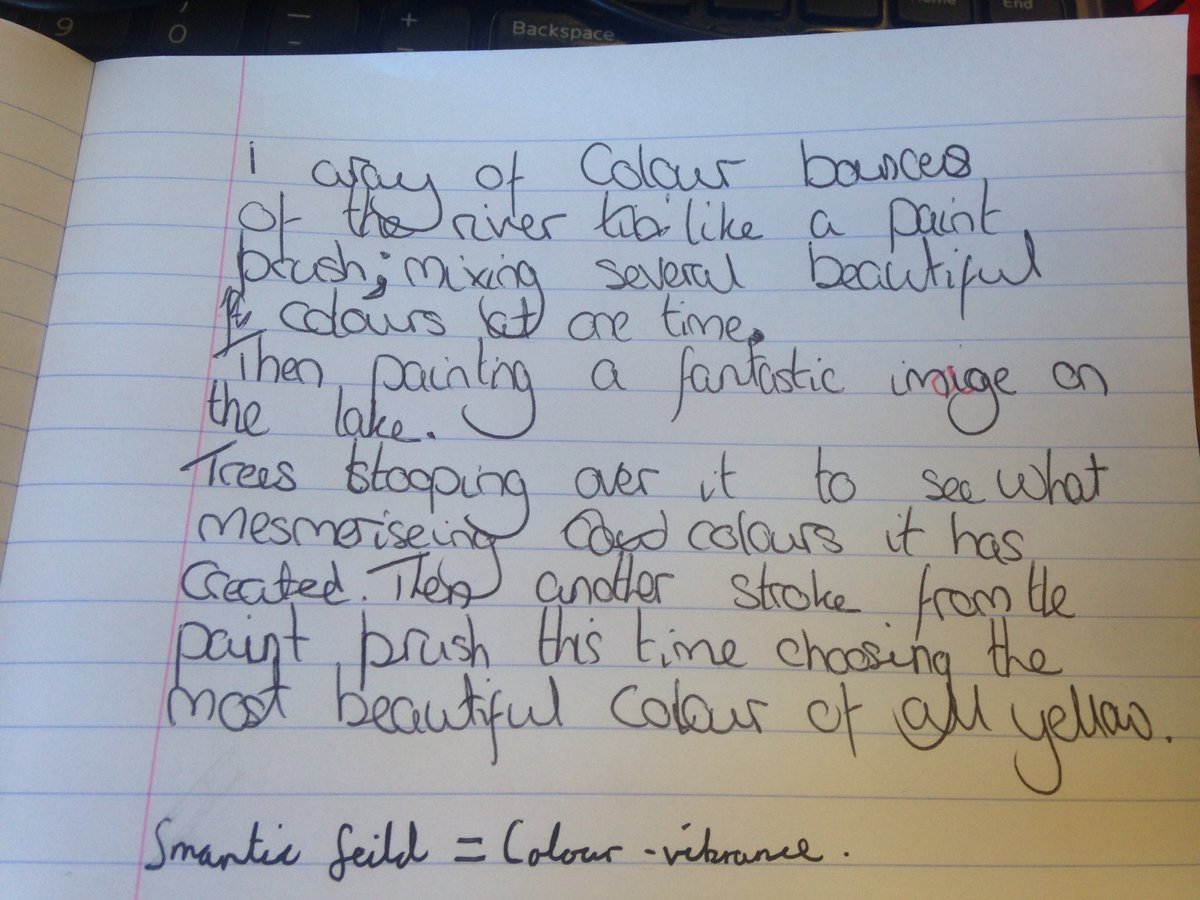 9
0
-
-
+
=
Backspace
Home
End
i array of Colour bounces
of the river like a paint
brush; mixing several beautiful
colours at one time.
Then painting a fantastic image on
the lake.
Trees stooping over it to see what
mesmeriseing colours it has
created. Then another stroke from the
paint brush this time choosing the
most beautiful colour of all yellow.
Smantic feild = Colour - vibrance.